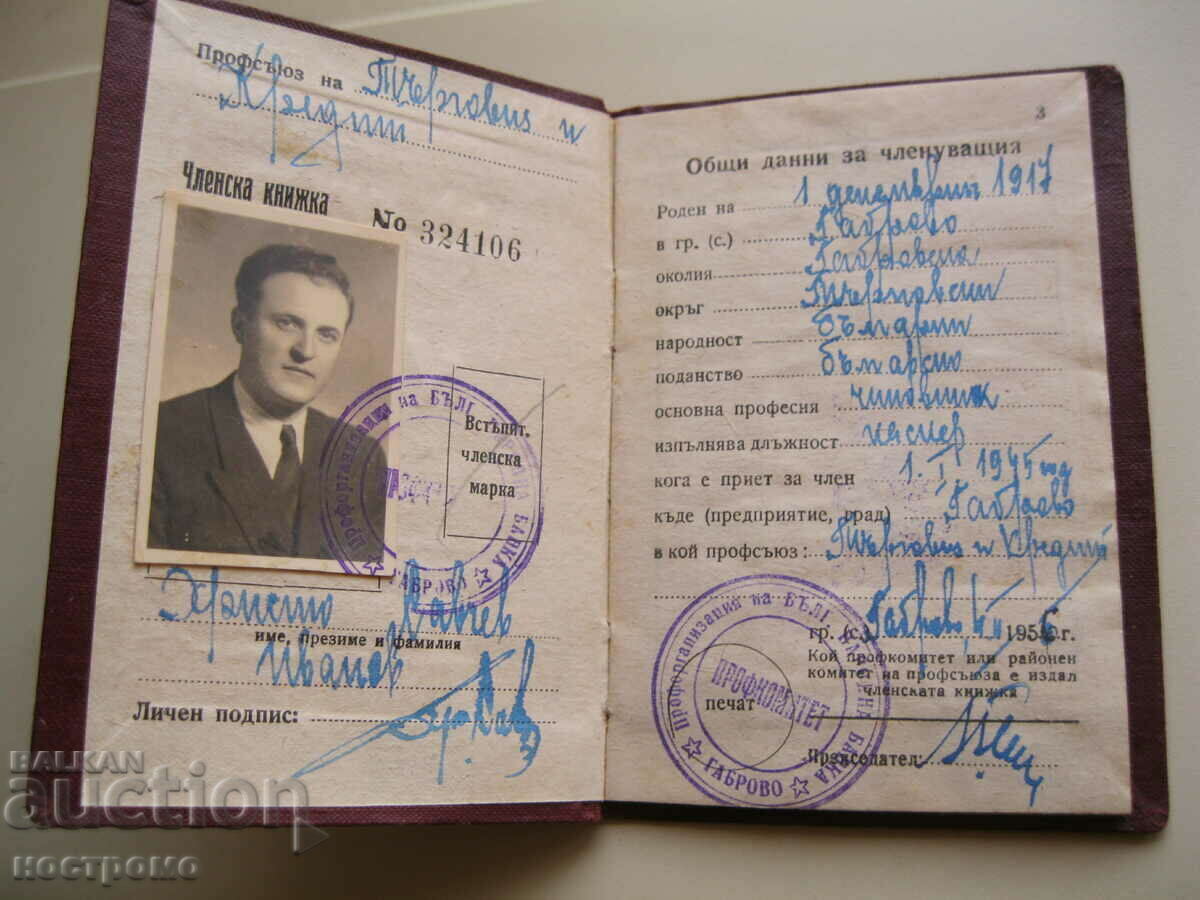 Профсъюз на Търговия и
Кредит
Членска книжка
№ 324106
Встъпит.
членска
марка
Профорганизация на БЪЛГ. НАРОДНА БАНКА
ГАБРОВО
Христо
име, презиме и фамилия
Иванов
Личен подпис:
3
Общи данни за членуващия
Роден на 1 декемврий 1917
в гр. (с.) Габрово
околия Габровска
окръг Търновски
народност българин
поданство българско
основна професия чиновник
изпълнява длъжност касиер
кога е приет за член 1. 1945 год
къде (предприятие, град) Габрово
в кой профсъюз: Търговия и Кредит
гр. (с.) Габрово 195 6 г.
Кой профкомитет или районен
комитет на профсъюза е издал
членската книжка
печат
Председател:
Профорганизация на БЪЛГ. НАРОДНА БАНКА
ПРОФКОМИТЕТ
ГАБРОВО
BALKAN
auction
костромо